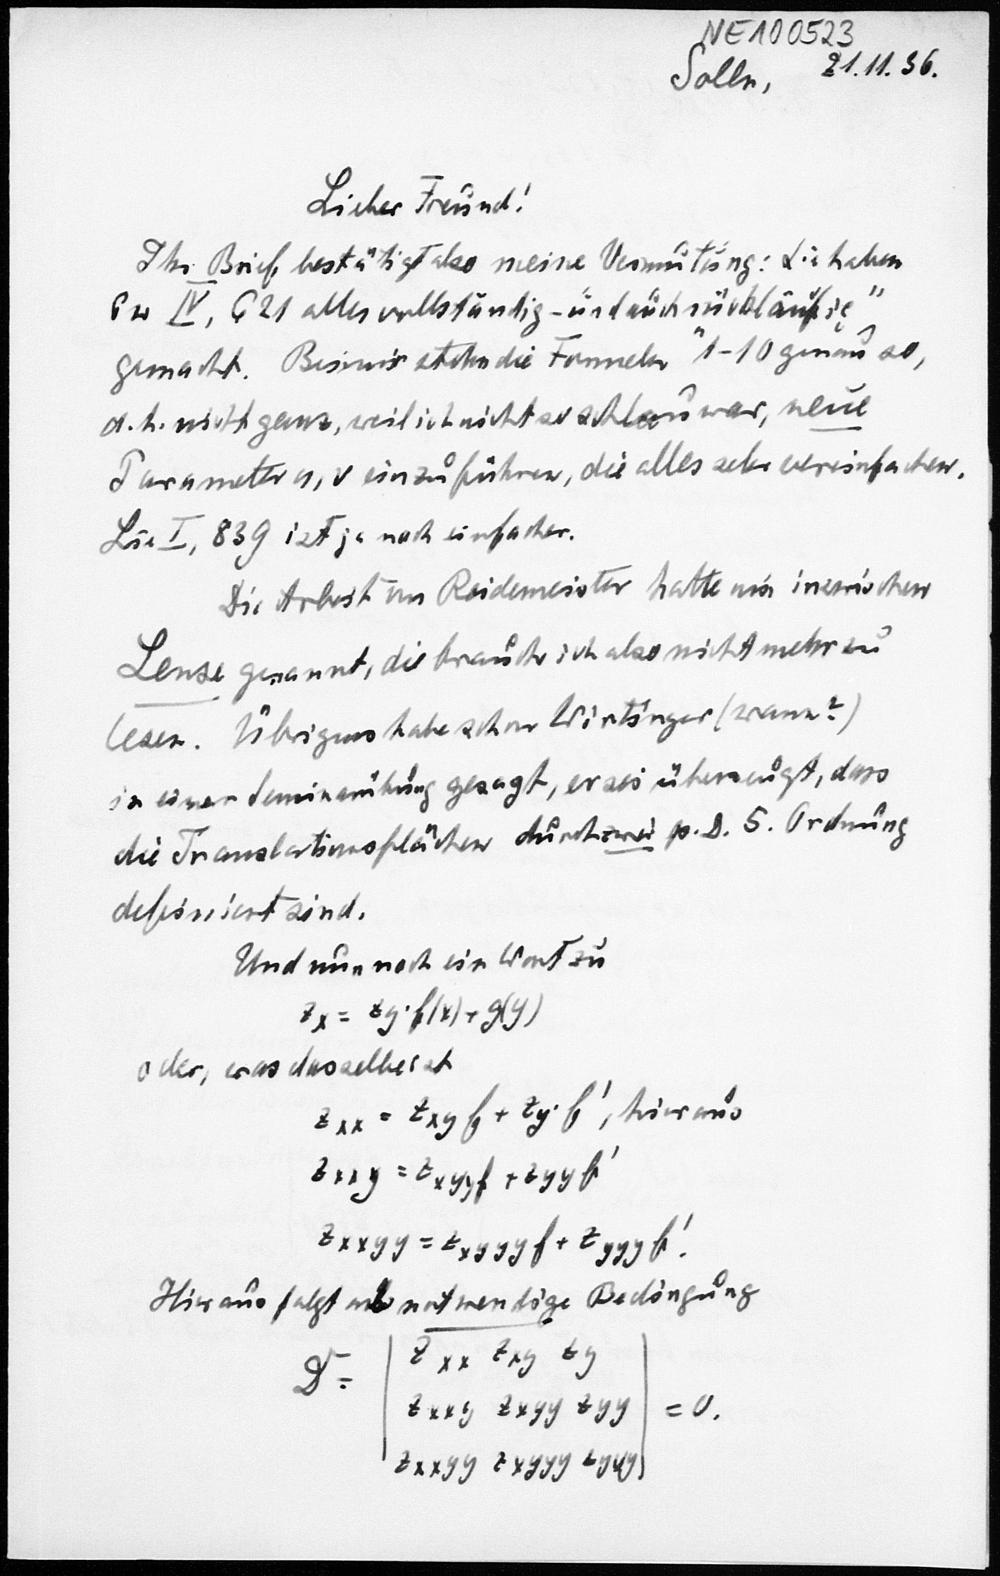 NE100523
Solln, 21.11.36.
Lieber Freund!
Ihr Brief bestätigt also meine Vermutung: Sie haben
in IV, 621 alles vollständig - und auch „rückläufig"
gemacht. Bei mir stehn die Formeln 1-10 genau so,
d.h. nicht ganz, weil ich nicht so schlau war, neue
Parameter u, v einzuführen, die alles sehr vereinfachen.
Lie I, 839 ist ja noch einfacher.
Die Arbeit von Reidemeister hatte mir inzwischen
Lense genannt, die brauche ich also nicht mehr zu
lesen. Übrigens habe schon Wirtinger (wann?)
in einer Seminarübung gesagt, er sei überzeugt, dass
die Translationsflächen durch zwei p. D. 5. Ordnung
definiert sind.
Und nun noch ein Wort zu
z_x = z_y · f(x) + g(y)
oder, was dasselbe ist
z_xx = z_xy f + z_y · f', hieraus
z_xxy = z_xyy f + z_yy f'
z_xxyy = z_xyyy f + z_yyy f'.
Hieraus folgt als notwendige Bedingung
D = | z_xx z_xy z_y |
| z_xxy z_xyy z_yy | = 0.
| z_xxyy z_xyyy z_yyy |